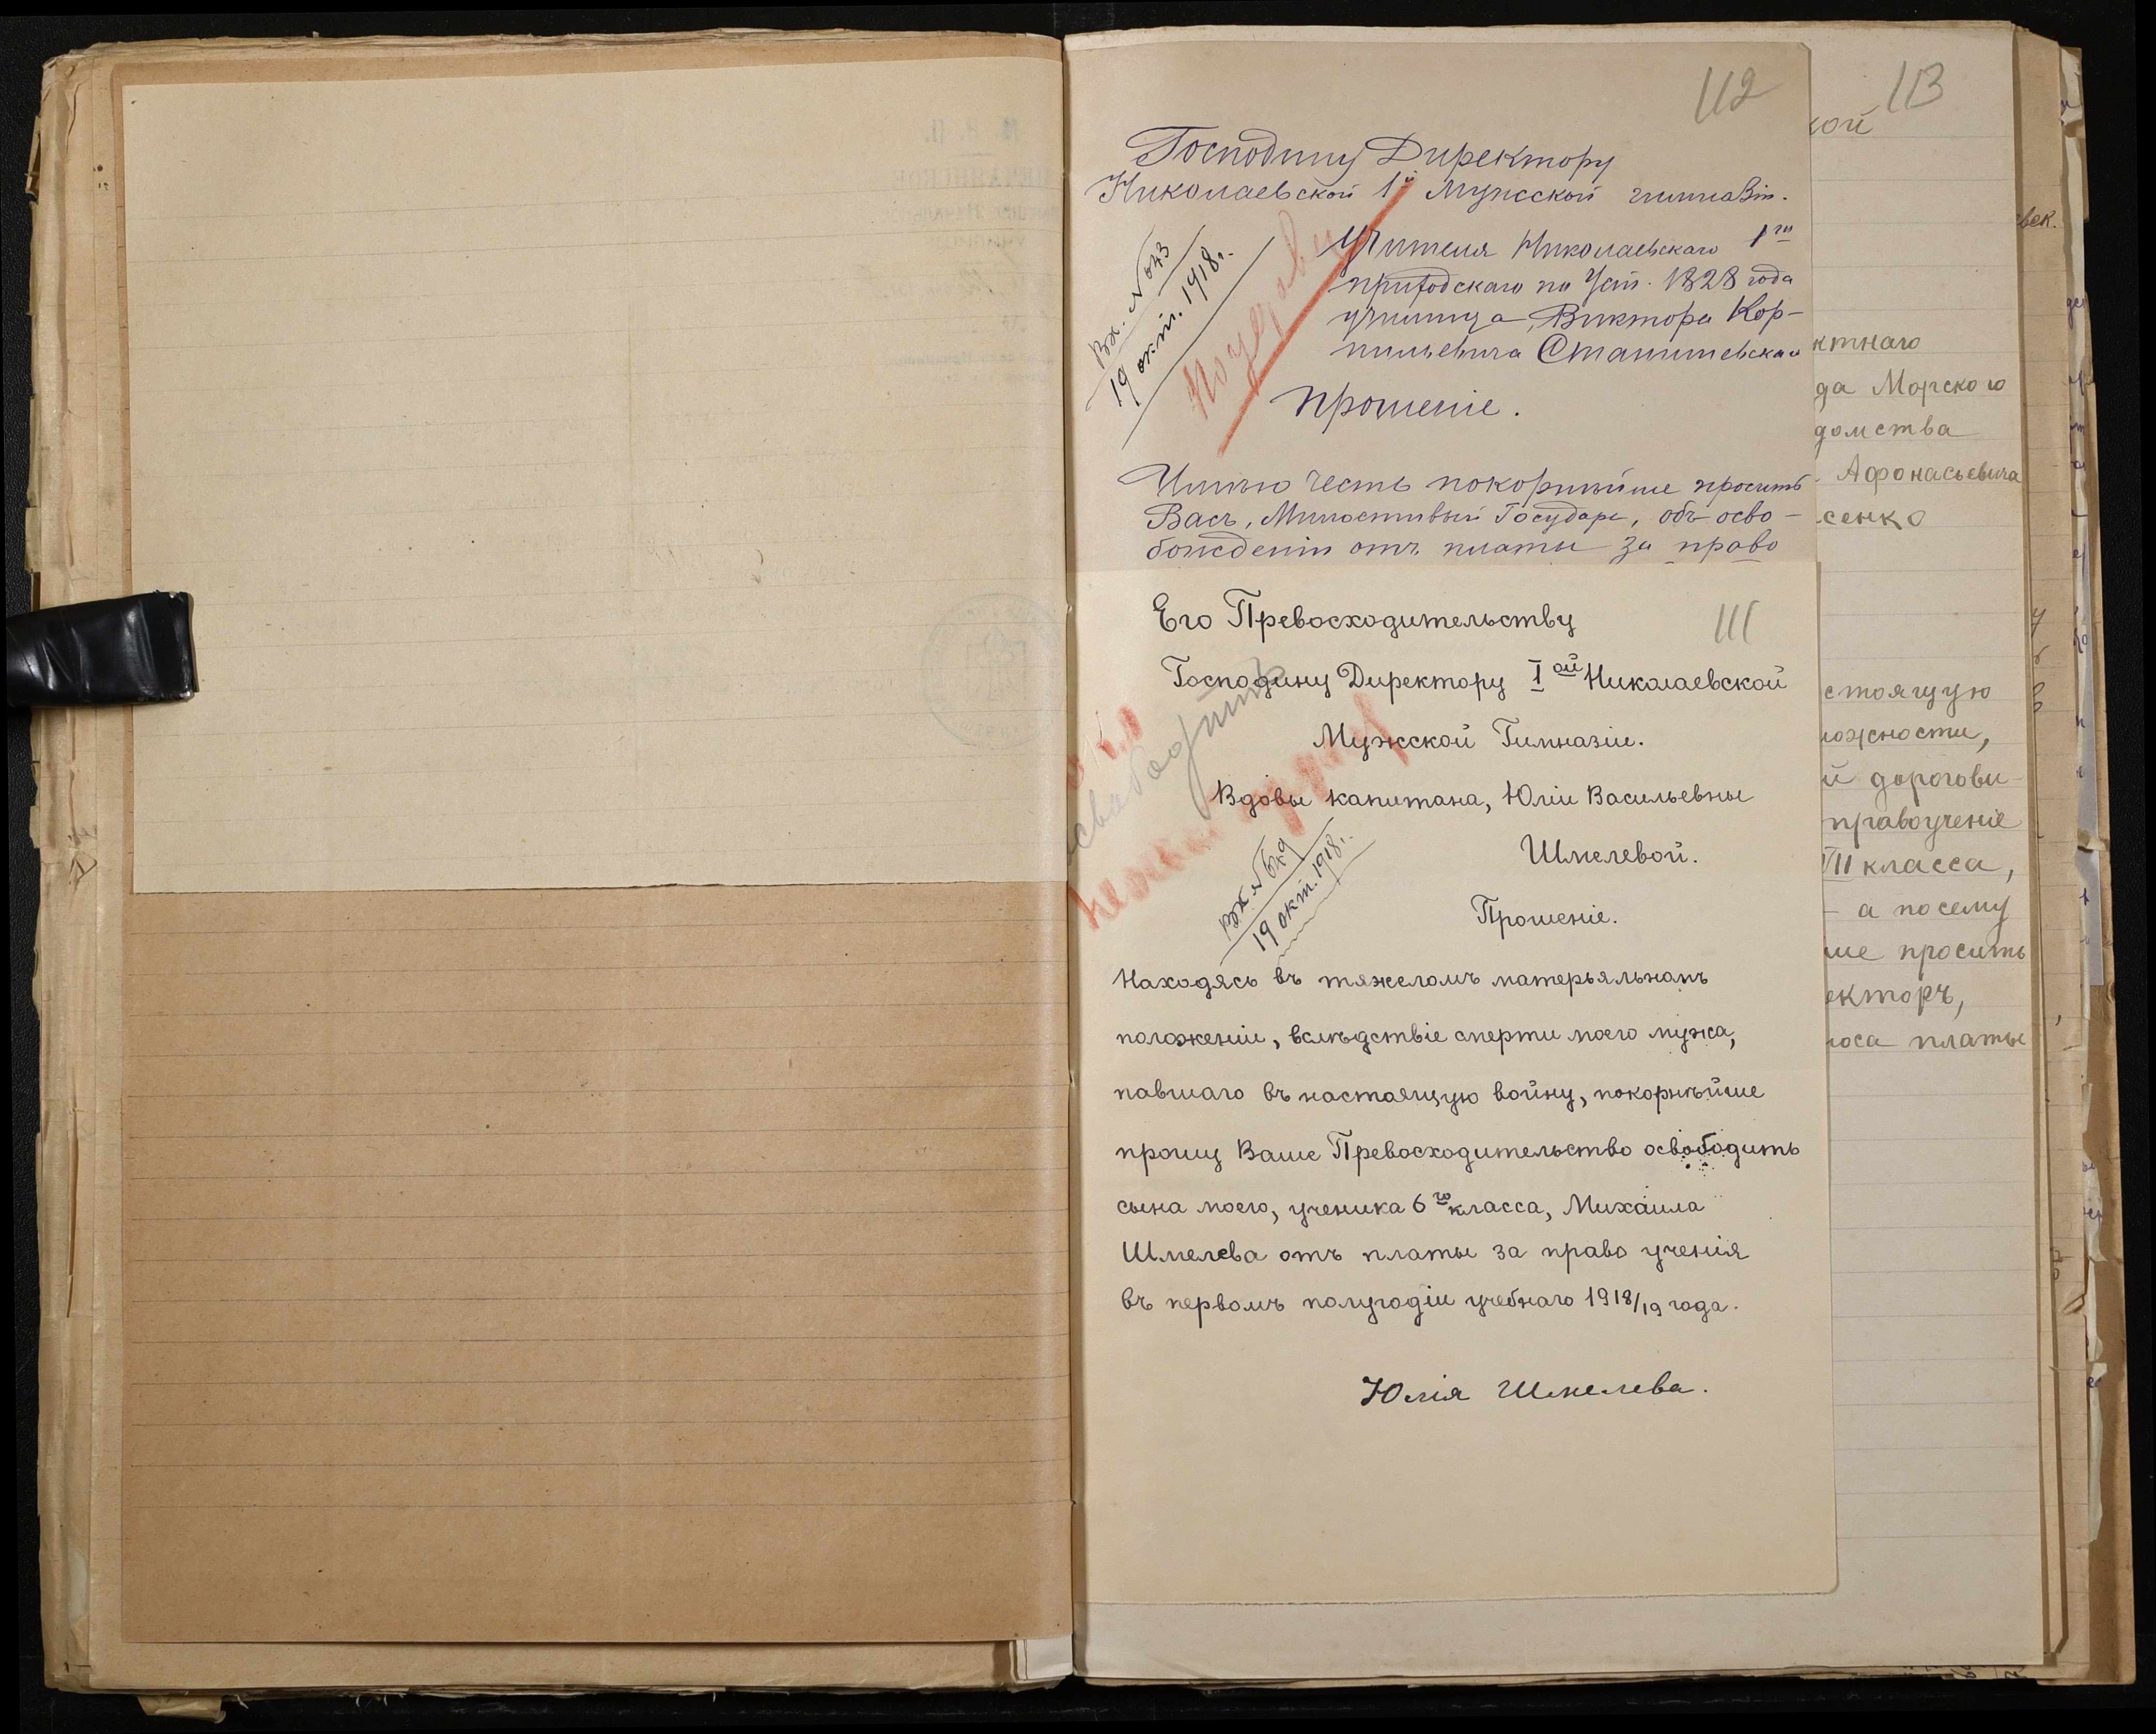 112
Господину Директору
Николаевской 1й Мужской гимназіи.
Учителя Николаевскаго 1го
приходскаго по Уст. 1828 года
училища, Виктора Кор-
нильевича Станишевскаго
Вх. №
19 окт. 1918 г.
Прошеніе.
Имѣю честь покорнѣйше просить
Васъ, Милостивый Государь, объ осво-
божденіи отъ платы за право
111
Его Превосходительству
Господину Директору Iой Николаевской
Мужской Гимназіи.
Вдовы капитана, Юліи Васильевны
Шмелевой.
освободить
Вх. №
19 окт. 1918 г.
Прошеніе.
Находясь въ тяжеломъ матерьяльномъ
положеніи, вслѣдствіе смерти моего мужа,
павшаго въ настоящую войну, покорнѣйше
прошу Ваше Превосходительство освободить
сына моего, ученика 6го класса, Михаила
Шмелева отъ платы за право ученія
въ первомъ полугодіи учебнаго 1918/19 года.
Юлія Шмелева.
113
кой
ктнаго
да Морского
домства
Афонасьевича
сенко
стоящую
ложности,
й дорогови-
правоученіе
VII класса,
- а посему
ше просить
екторъ,
носа платы